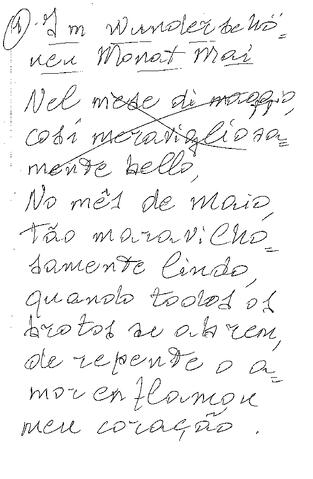 1. Im wunderschö=
nen Monat Mai
Nel mese di maggio,
così meravigliosa=
mente bello,
No mês de maio,
tão maravilho=
samente lindo,
quando todos os
brotos se abrem,
de repente o a=
mor enflamou
meu coração.